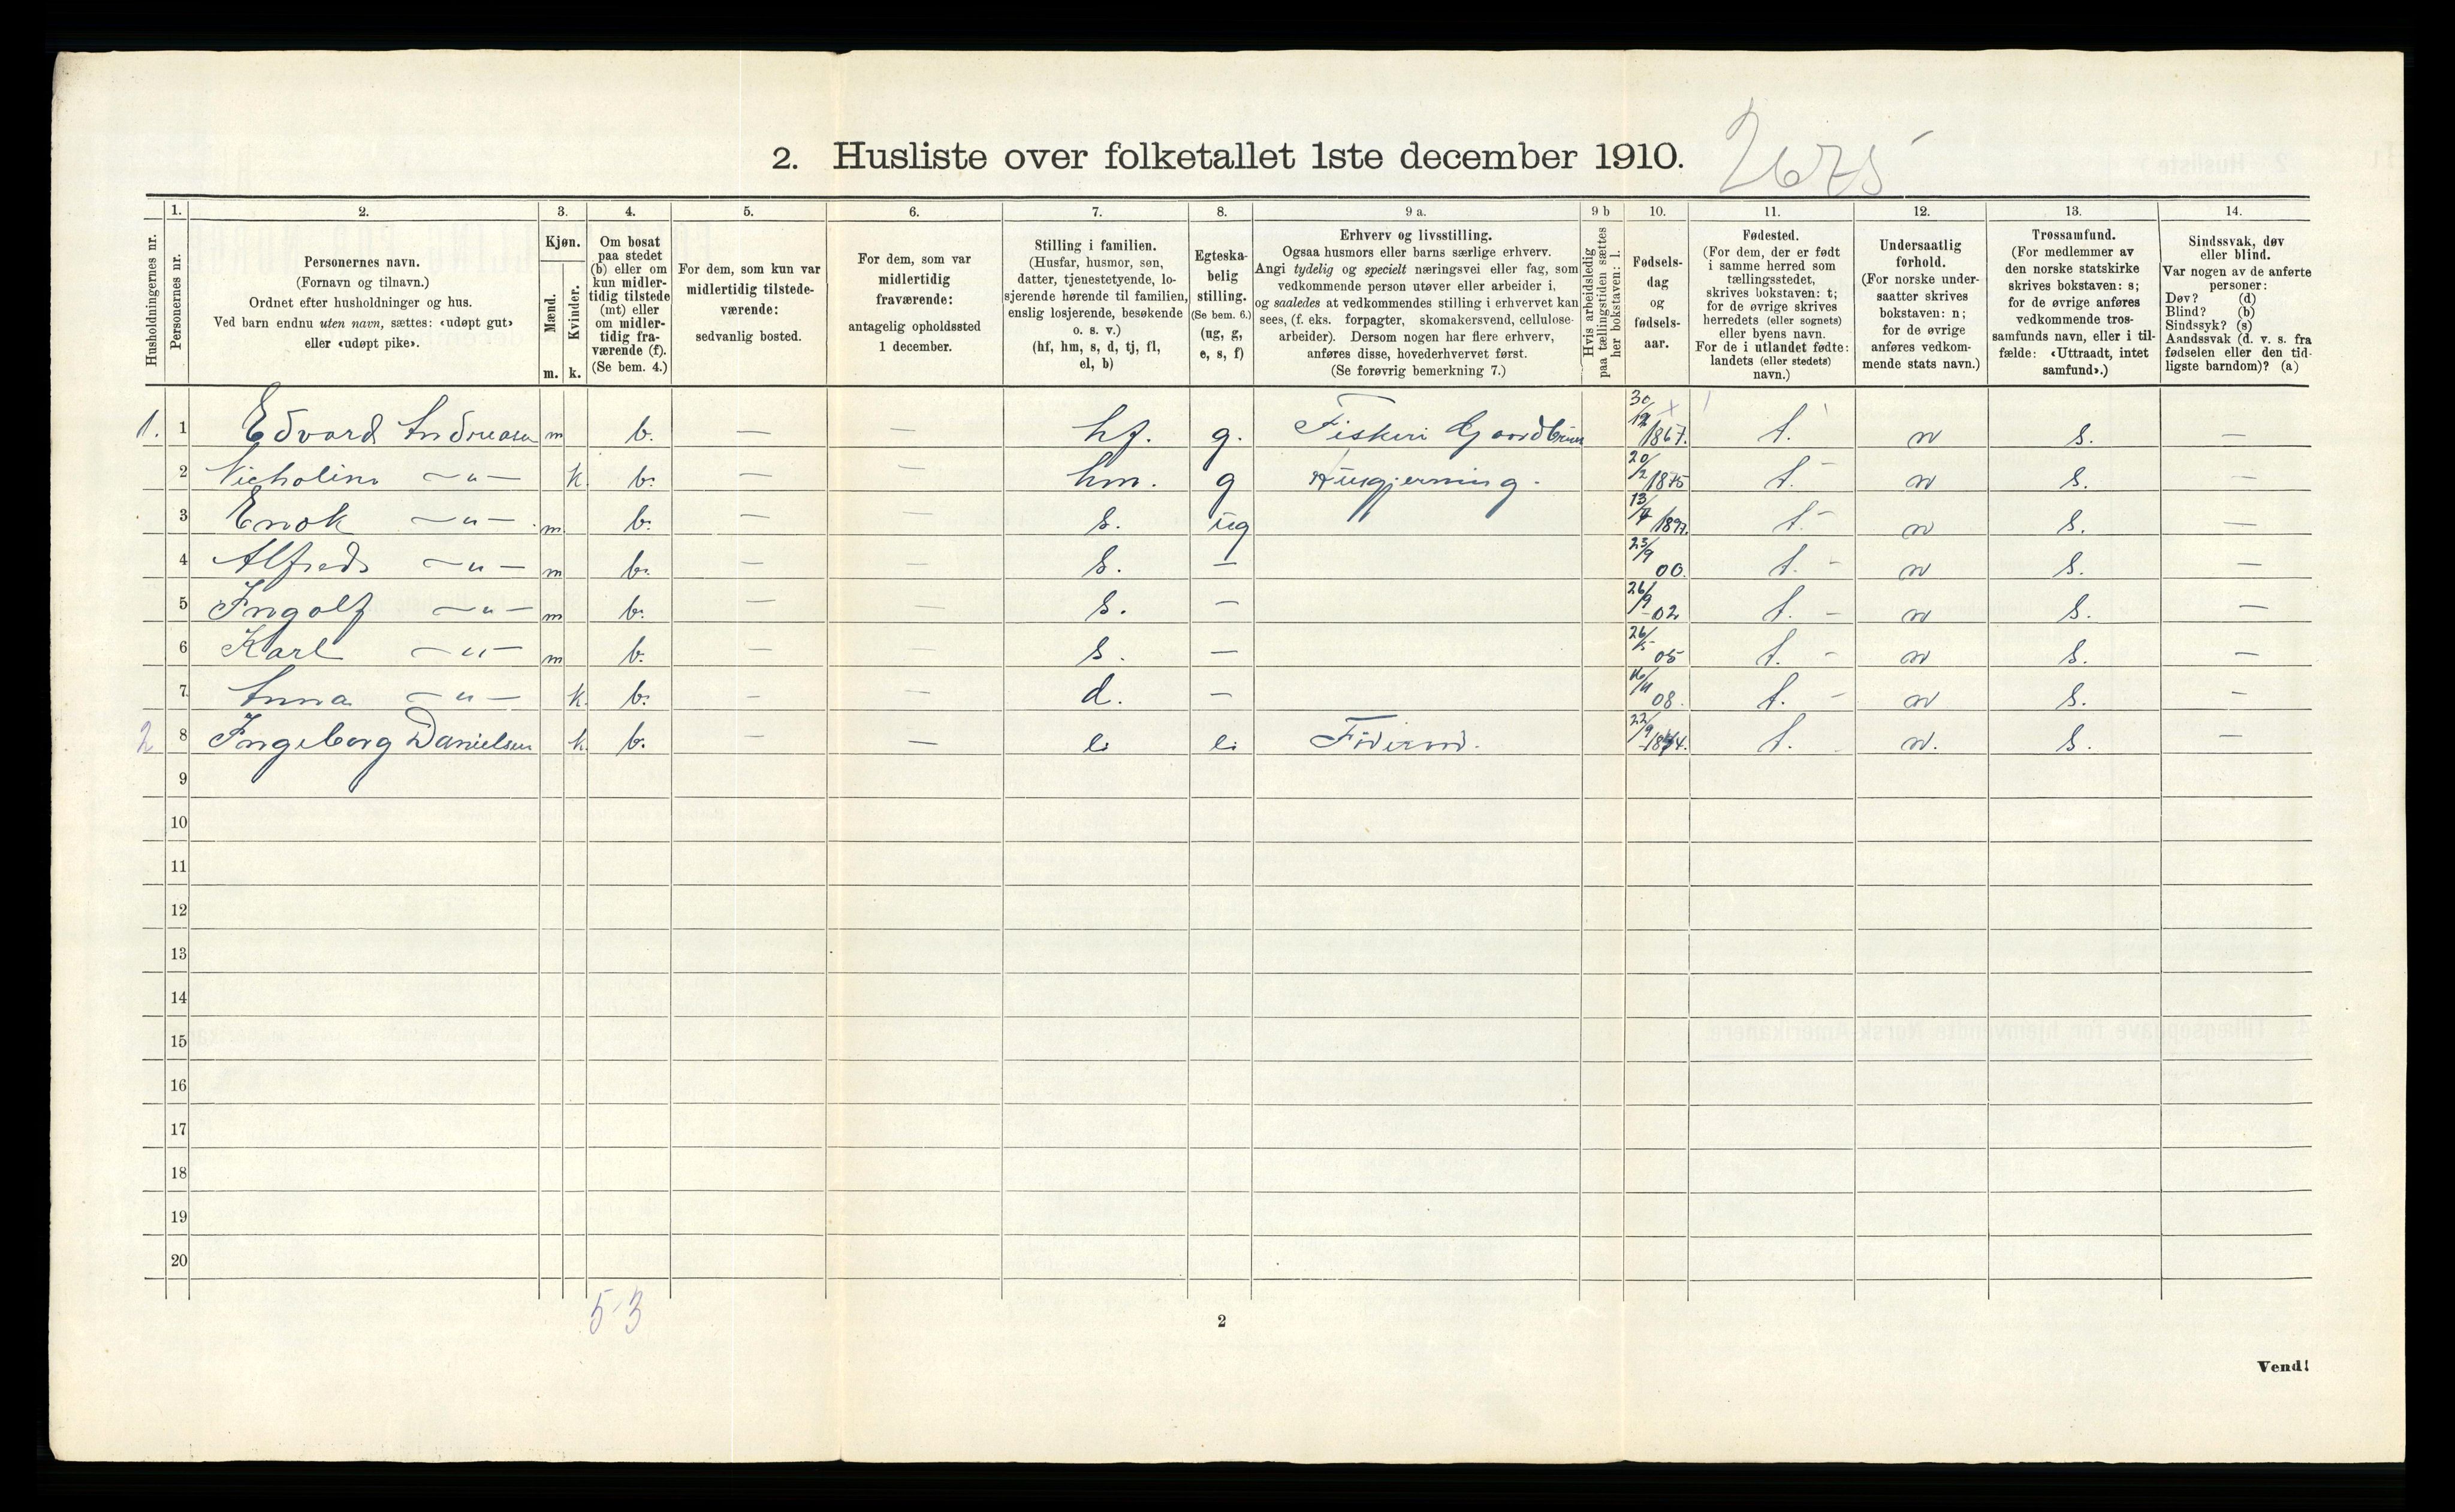 2. Husliste over folketallet 1ste december 1910. 2675
1. 2. 3. 4. 5. 6. 7. 8. 9 a. 9 b 10. 11. 12. 13. 14.
Husholdningernes nr.
Personernes nr.
Personernes navn.
(Fornavn og tilnavn.)
Ordnet efter husholdninger og hus.
Ved barn endnu uten navn, sættes: «udøpt gut»
eller «udøpt pike».
Kjøn.
Mænd.
Kvinder.
m. k.
Om bosat
paa stedet
(b) eller om
kun midler-
tidig tilstede
(mt) eller
om midler-
tidig fra-
værende (f).
(Se bem. 4.)
For dem, som kun var
midlertidig tilstede-
værende:
sedvanlig bosted.
For dem, som var
midlertidig
fraværende:
antagelig opholdssted
1 december.
Stilling i familien.
(Husfar, husmor, søn,
datter, tjenestetyende, lo-
sjerende hørende til familien,
enslig losjerende, besøkende
o. s. v.)
(hf, hm, s, d, tj, fl,
el, b)
Egteska-
belig
stilling.
(Se bem. 6.)
(ug, g,
e, s, f)
Erhverv og livsstilling.
Ogsaa husmors eller barns særlige erhverv.
Angi tydelig og specielt næringsvei eller fag, som
vedkommende person utøver eller arbeider i,
og saaledes at vedkommendes stilling i erhvervet kan
sees, (f. eks. forpagter, skomakersvend, cellulose-
arbeider). Dersom nogen har flere erhverv,
anføres disse, hovederhvervet først.
(Se forøvrig bemerkning 7.)
Hvis arbeidsledig
paa tællingstiden sættes
her bokstaven: l.
Fødsels-
dag
og
fødsels-
aar.
Fødested.
(For dem, der er født
i samme herred som
tællingsstedet,
skrives bokstaven: t;
for de øvrige skrives
herredets (eller sognets)
eller byens navn.
For de i utlandet fødte:
landets (eller stedets)
navn.)
Undersaatlig
forhold.
(For norske under-
saatter skrives
bokstaven: n;
for de øvrige
anføres vedkom-
mende stats navn.)
Trossamfund.
(For medlemmer av
den norske statskirke
skrives bokstaven: s;
for de øvrige anføres
vedkommende tros-
samfunds navn, eller i til-
fælde: «Uttraadt, intet
samfund».)
Sindssvak, døv
eller blind.
Var nogen av de anførte
personer:
Døv? (d)
Blind? (b)
Sindssyk? (s)
Aandssvak (d. v. s. fra
fødselen eller den tid-
ligste barndom)? (a)
1. 1 Edvard Andreasen m b. — — hf. g. Fiskeri 30/12 1867. t. n s. —
2 Nicholine —„— k. b. — — hm. g Husgjerning. 20/2 1875 t. n s. —
3 Enok —„— m. b. — — s. ug 13/7 1897. t. n s. —
4 Alfred —„— m b. — — s. — 23/9 00. t. n s. —
5 Ingolf —„— m b. — — s. — 26/9 02 t. n s. —
6 Karl —„— m b. — — s. — 26/5 05 t. n s. —
7 Anna —„— k. b. — — d. — 16/11 08. t. n s. —
2 8 Ingeborg Danielsen k. b. — — 22/9 t. n. s. —
9
10
11
12
13
14
15
16
17
18
19
20
5-3
2
Vend!